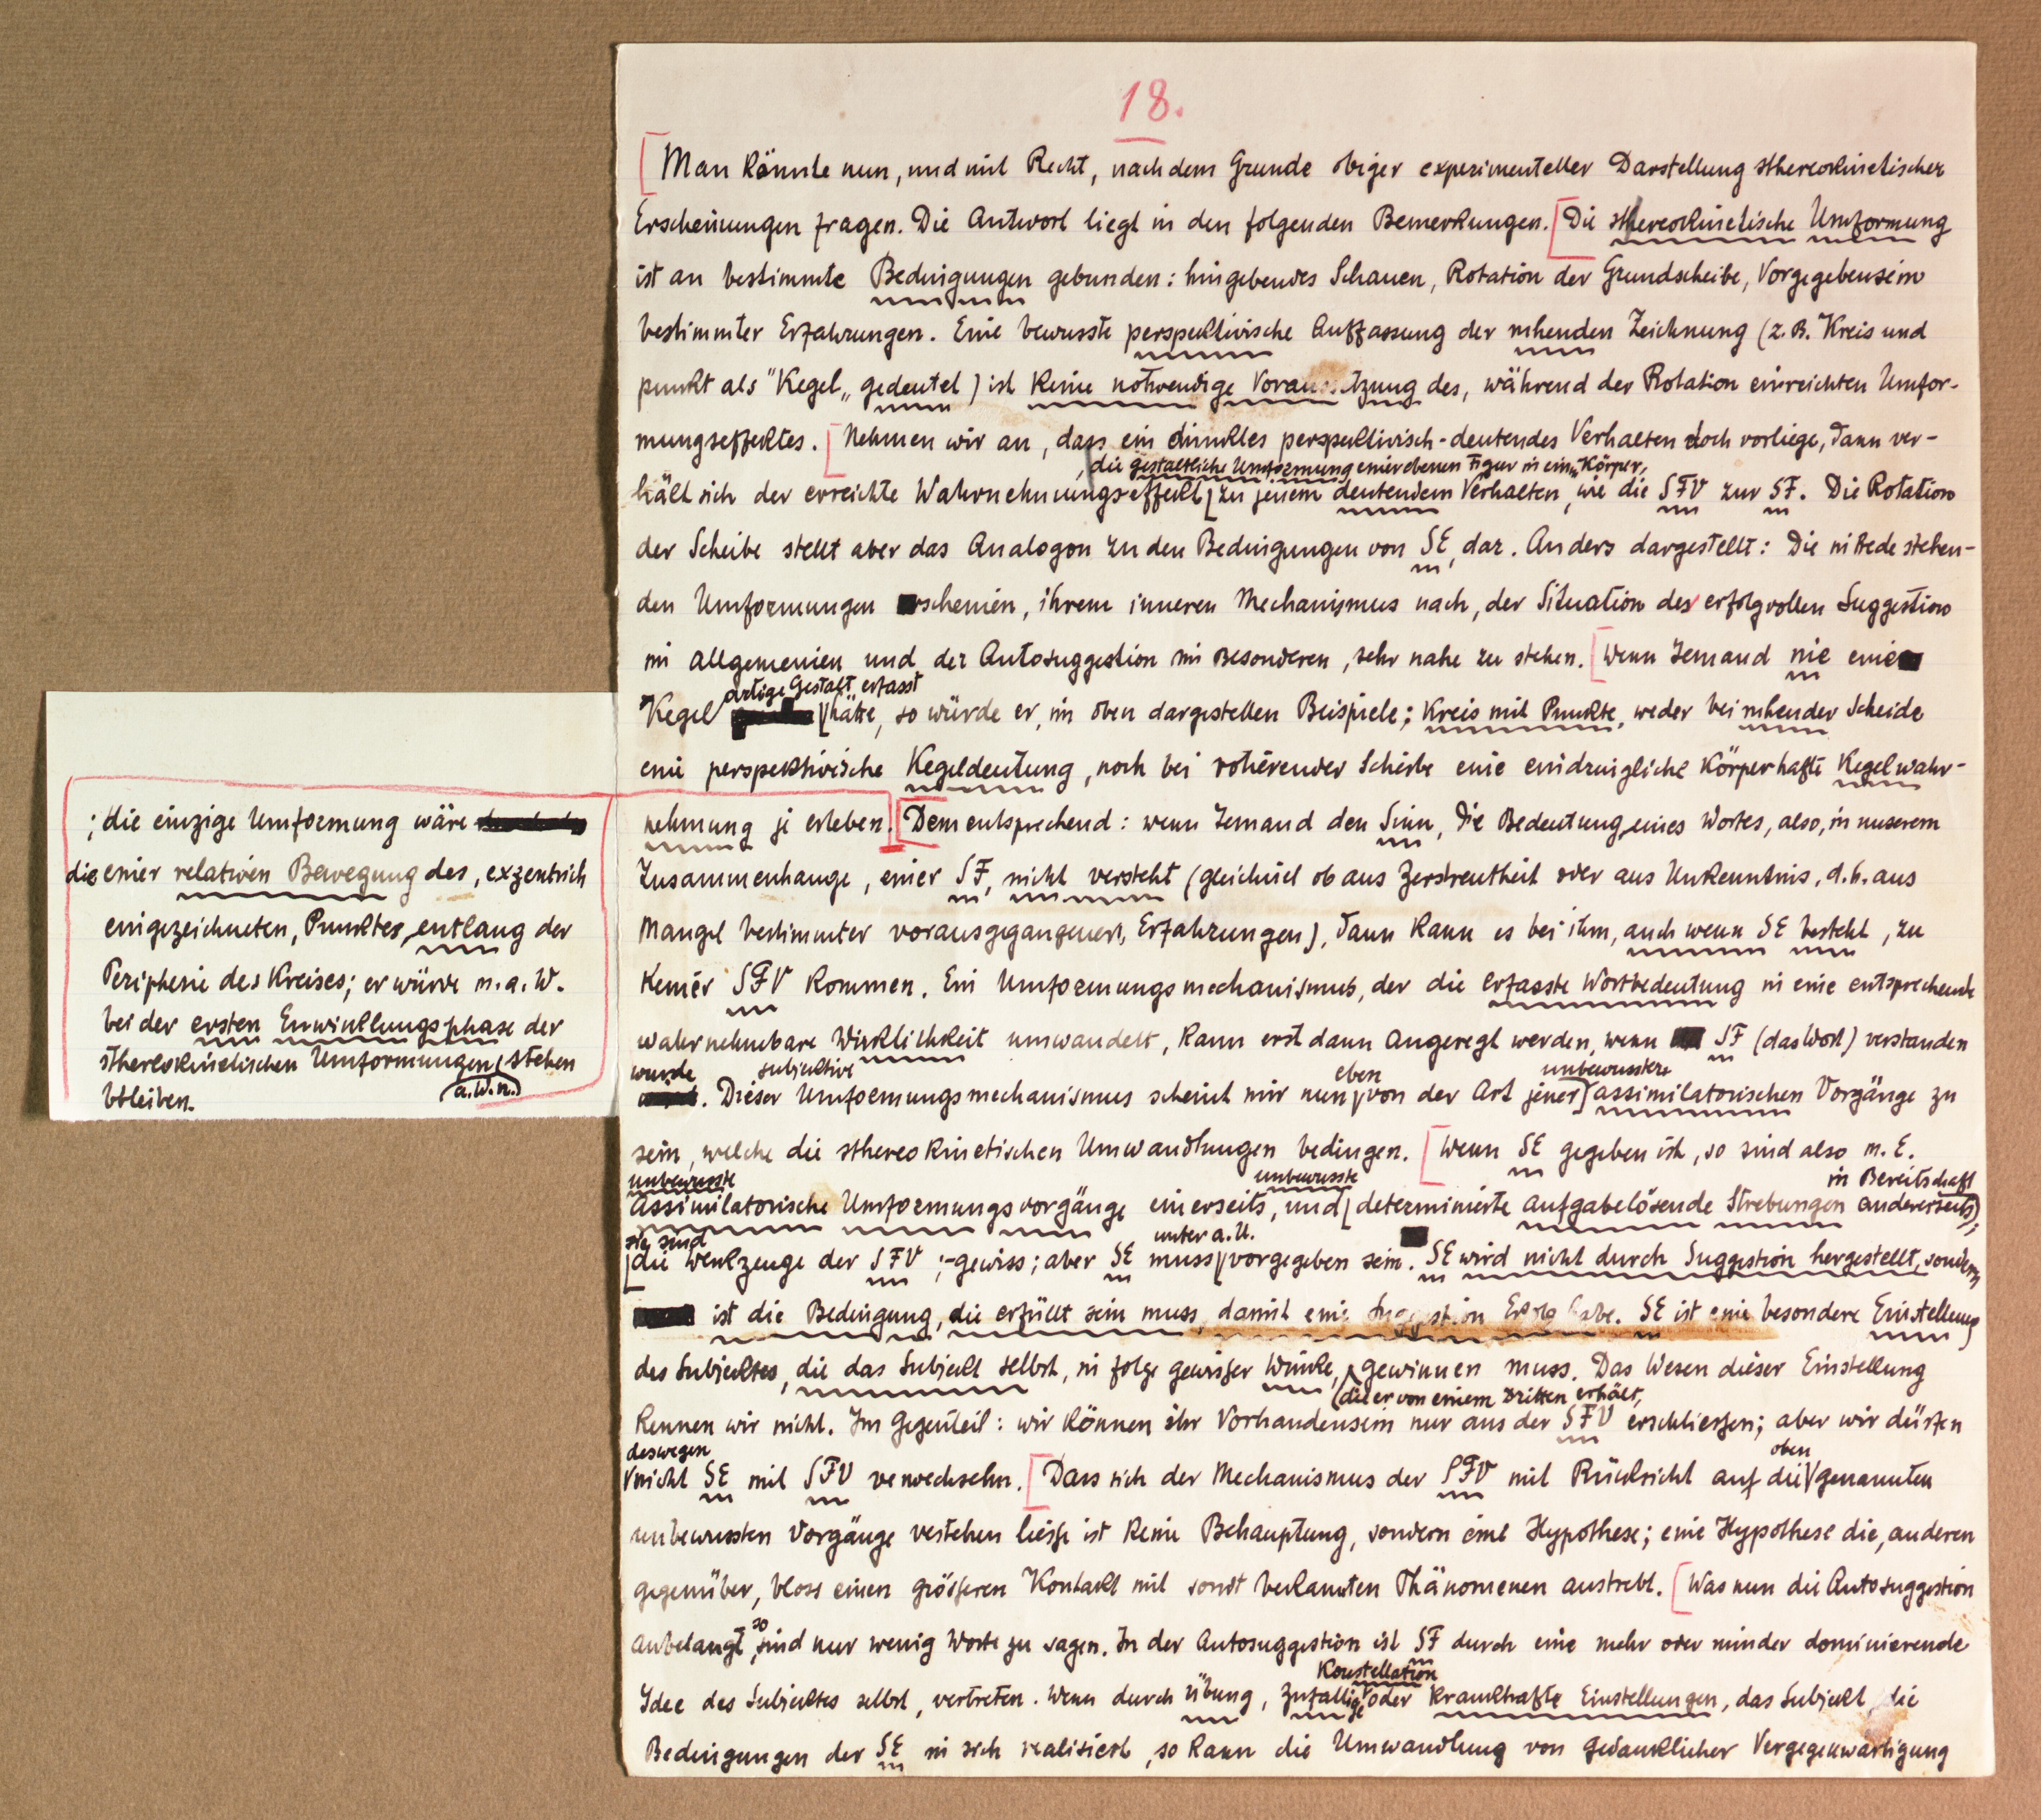 18.
Man könnte nun, und mit Recht, nach dem Grunde obiger experimenteller Darstellung sthereokinetischer
Erscheinungen fragen. Die Antwort liegt in den folgenden Bemerkungen. Die sthereokinetische Umformung
ist an bestimmte Bedingungen gebunden: hingebendes Schauen, Rotation der Grundscheibe, Vorgegebensein
bestimmter Erfahrungen. Eine bewusste perspektivische Auffassung der ruhenden Zeichnung (z.B. Kreis und
punkt als "Kegel„ gedeutet) ist keine notwendige Voraussetzung des, während der Rotation erreichten Umfor-
mungseffektes. Nehmen wir an, dass ein dunkles perspektivisch-deutendes Verhalten doch vorliege, dann ver-
, die gestaltliche Umformung einer ebenen Figur in ein "Körper,
hält sich der erreichte Wahrnehmungseffekt zu jenem deutendem Verhalten, wie die SFV zur SF. Die Rotation
der Scheibe stellt aber das Analogon zu den Bedingungen von SE, dar. Anders dargestellt: Die in Rede stehen-
den Umformungen erscheinen, ihrem inneren Mechanismus nach, der Situation der erfolgvollen Suggestion
im allgemeinen und der Autosuggestion im Besonderen, sehr nahe zu stehen. Wenn Jemand nie eine
artige Gestalt erfasst
Kegel hätte, so würde er, im oben dargestellen Beispiele: Kreis mit Punkte, weder bei ruhender Scheide
eine perspektivische Kegeldeutung, noch bei rotierender Scheibe eine eindringliche Körperhafte Kegelwahr-
nehmung je erleben. Dementsprechend: wenn Jemand den Sinn, die Bedeutung eines Wortes, also, in unserem
Zusammenhange, einer SF, nicht versteht (gleichviel ob aus Zerstreutheit oder aus Unkenntnis, d.h. aus
Mangel bestimmter vorausgegangener, Erfahrungen), dann kann es bei ihm, auch wenn SE besteht, zu
keiner SFV kommen. Ein Umformungsmechanismus, der die erfasste Wortbedeutung in eine entsprechende
wahrnehmbare Wirklichkeit umwandelt, kann erst dann angeregt werden, wenn SF (das Wort) verstanden
wurde subjektive eben unbewusster
. Dieser Umformungsmechanismus scheint mir nun von der Art jener assimilatorischen Vorgänge zu
sein, welche die sthereokinetischen Umwandlungen bedingen. Wenn SE gegeben ist, so sind also m.E.
unbewusste unbewusste in Bereitschaft
Assimilatorische Umformungsvorgänge einerseits, und determinierte aufgabelösende Strebungen andererseits,
sie sind unter a.U.
die Werkzeuge der SFV ;-gewiss; aber SE muss vorgegeben sein. SE wird nicht durch Suggestion hergestellt, sondern
ist die Bedingung, die erfüllt sein muss, damit eine Suggestion Erfolg habe. SE ist eine besondere Einstellung
des Subjektes, die das Subjekt selbst, in folge gewisser Winke, gewinnen muss. Das Wesen dieser Einstellung
(die er von einem Dritten erhält,
kennen wir nicht. Im Gegenteil: wir können ihr Vorhandensein nur aus der SFV erschliessen; aber wir dürfen
deswegen oben
nicht SE mit SFV verwechseln. Dass sich der Mechanismus der SFV mit Rücksicht auf die genannten
unbewussten Vorgänge vestehen liesse ist keine Behauptung, sondern eine Hypothese; eine Hypothese die, anderen
gegenüber, bloss einen grösseren Kontakt mit sonst bekannten Phänomenen anstrebt. Was nun die Autosuggestion
so
anbelangt, sind nur wenig Worte zu sagen. In der Autosuggestion ist SF durch eine mehr oder minder dominierende
Konstellation
Idee des Subjektes selbst, vertreten. Wenn durch Übung, zufällige oder krankhafte Einstellungen, das Subjekt die
Bedingungen der SE in sich realisiert, so kann die Umwandlung von gedanklicher Vergegenwärtigung
; die einzige Umformung wäre
die einer relativen Bewegung des, exzentrich
eingezeichneten, Punktes, entlang der
Peripherie des Kreises; er würde m.a.W.
bei der ersten Enwicklungsphase der
sthereokinetischen Umformungen stehen
(a.W.n.)
bleiben.